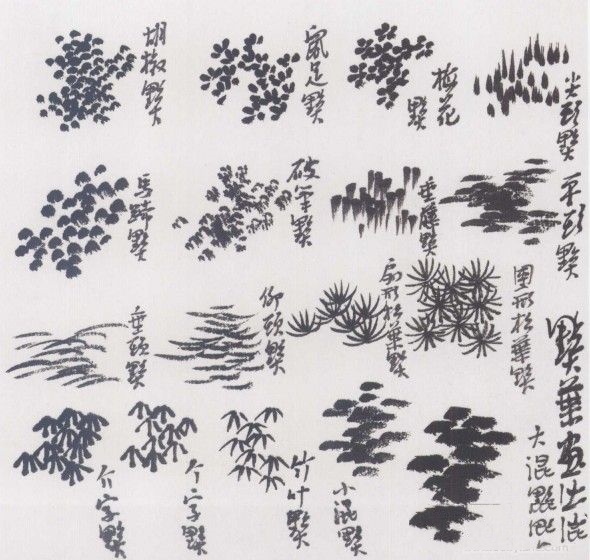 尖頭點
梅花點
鼠足點
胡椒點
平頭點
垂藤點
破筆點
馬蹄點
圓形松葉點
扇形松葉點
仰頭點
垂頭點
點葉畫
大混點
小混點
竹叶點
个字點
介字點